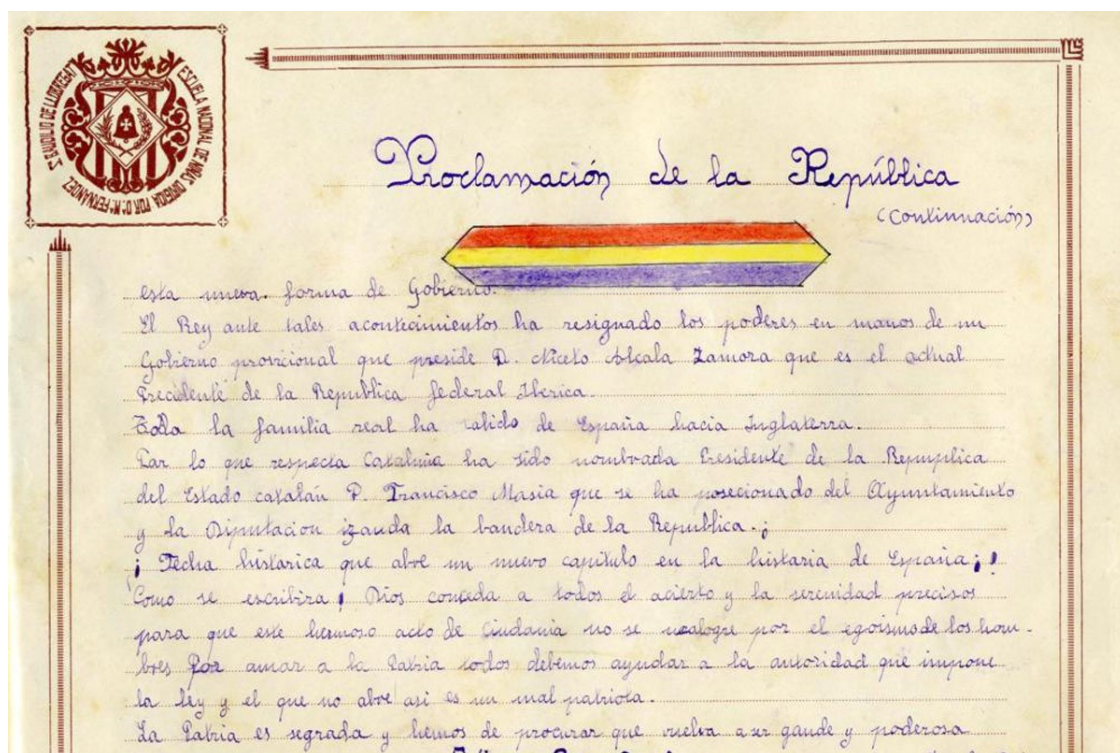 S. BAUDILIO DE LLOBREGAT
ESCUELA NACIONAL DE NIÑAS DIRIGIDA POR Dª Mª FERNANDEZ
Proclamación de la República
(Continuación)
esta nueva. forma de Gobierno.
El Rey ante tales acontecimientos ha resignado los poderes en manos de un
Gobierno provicional que preside D. Niceto Alcala Zamora que es el actual
Precidente de la Republica federal Iberica.
Toda la familia real ha salido de España hacia Inglaterra.
Par lo que respecta Cataluña ha sido nombrada Presidente de la Repruplica
del Estado catalán P. Francisco Masia que se ha posecionado del Ayuntamiento
y la Diputacion izanda la bandera de la Republica.¡
¡ Fecha histarica que abre un nuevo capitulo en la histaria de España¡!
Como se escribira! Dios conceda a todos el acierto y la serenidad precisos
para que este hermoso acto de Ciudania no se malogre por el egoismo de los hom-
bres Por amar a la Patria todos debemos ayudar a la autoridad que impone
la ley y el que no abre asi es un mal patriota.
La Patria es segrada y hemos de procurar que vuelva a ser gande y poderosa